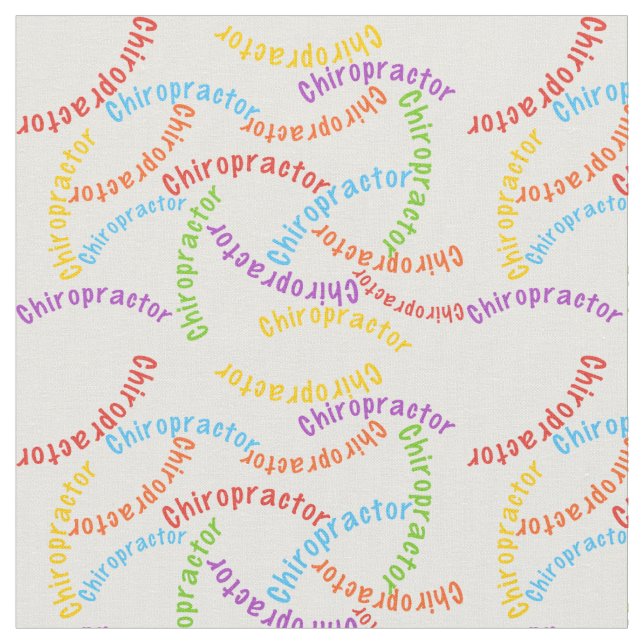 Chiropractor
Chiropractor
Chiropractor
Chiropractor
Chiropractor
Chiropractor
Chiropractor
Chiropractor
Chiropractor
Chiropractor
Chiropractor
Chiropractor
Chiropractor
Chiropractor
Chiropractor
Chiropractor
Chiropractor
Chiropractor
Chiropractor
Chiropractor
Chiropractor
Chiropractor
Chiropractor
Chiropractor
Chiropractor
Chiropractor
Chiropractor
Chiropractor
Chiropractor
Chiropractor
Chiropractor
Chiropractor
Chiropractor
Chiropractor